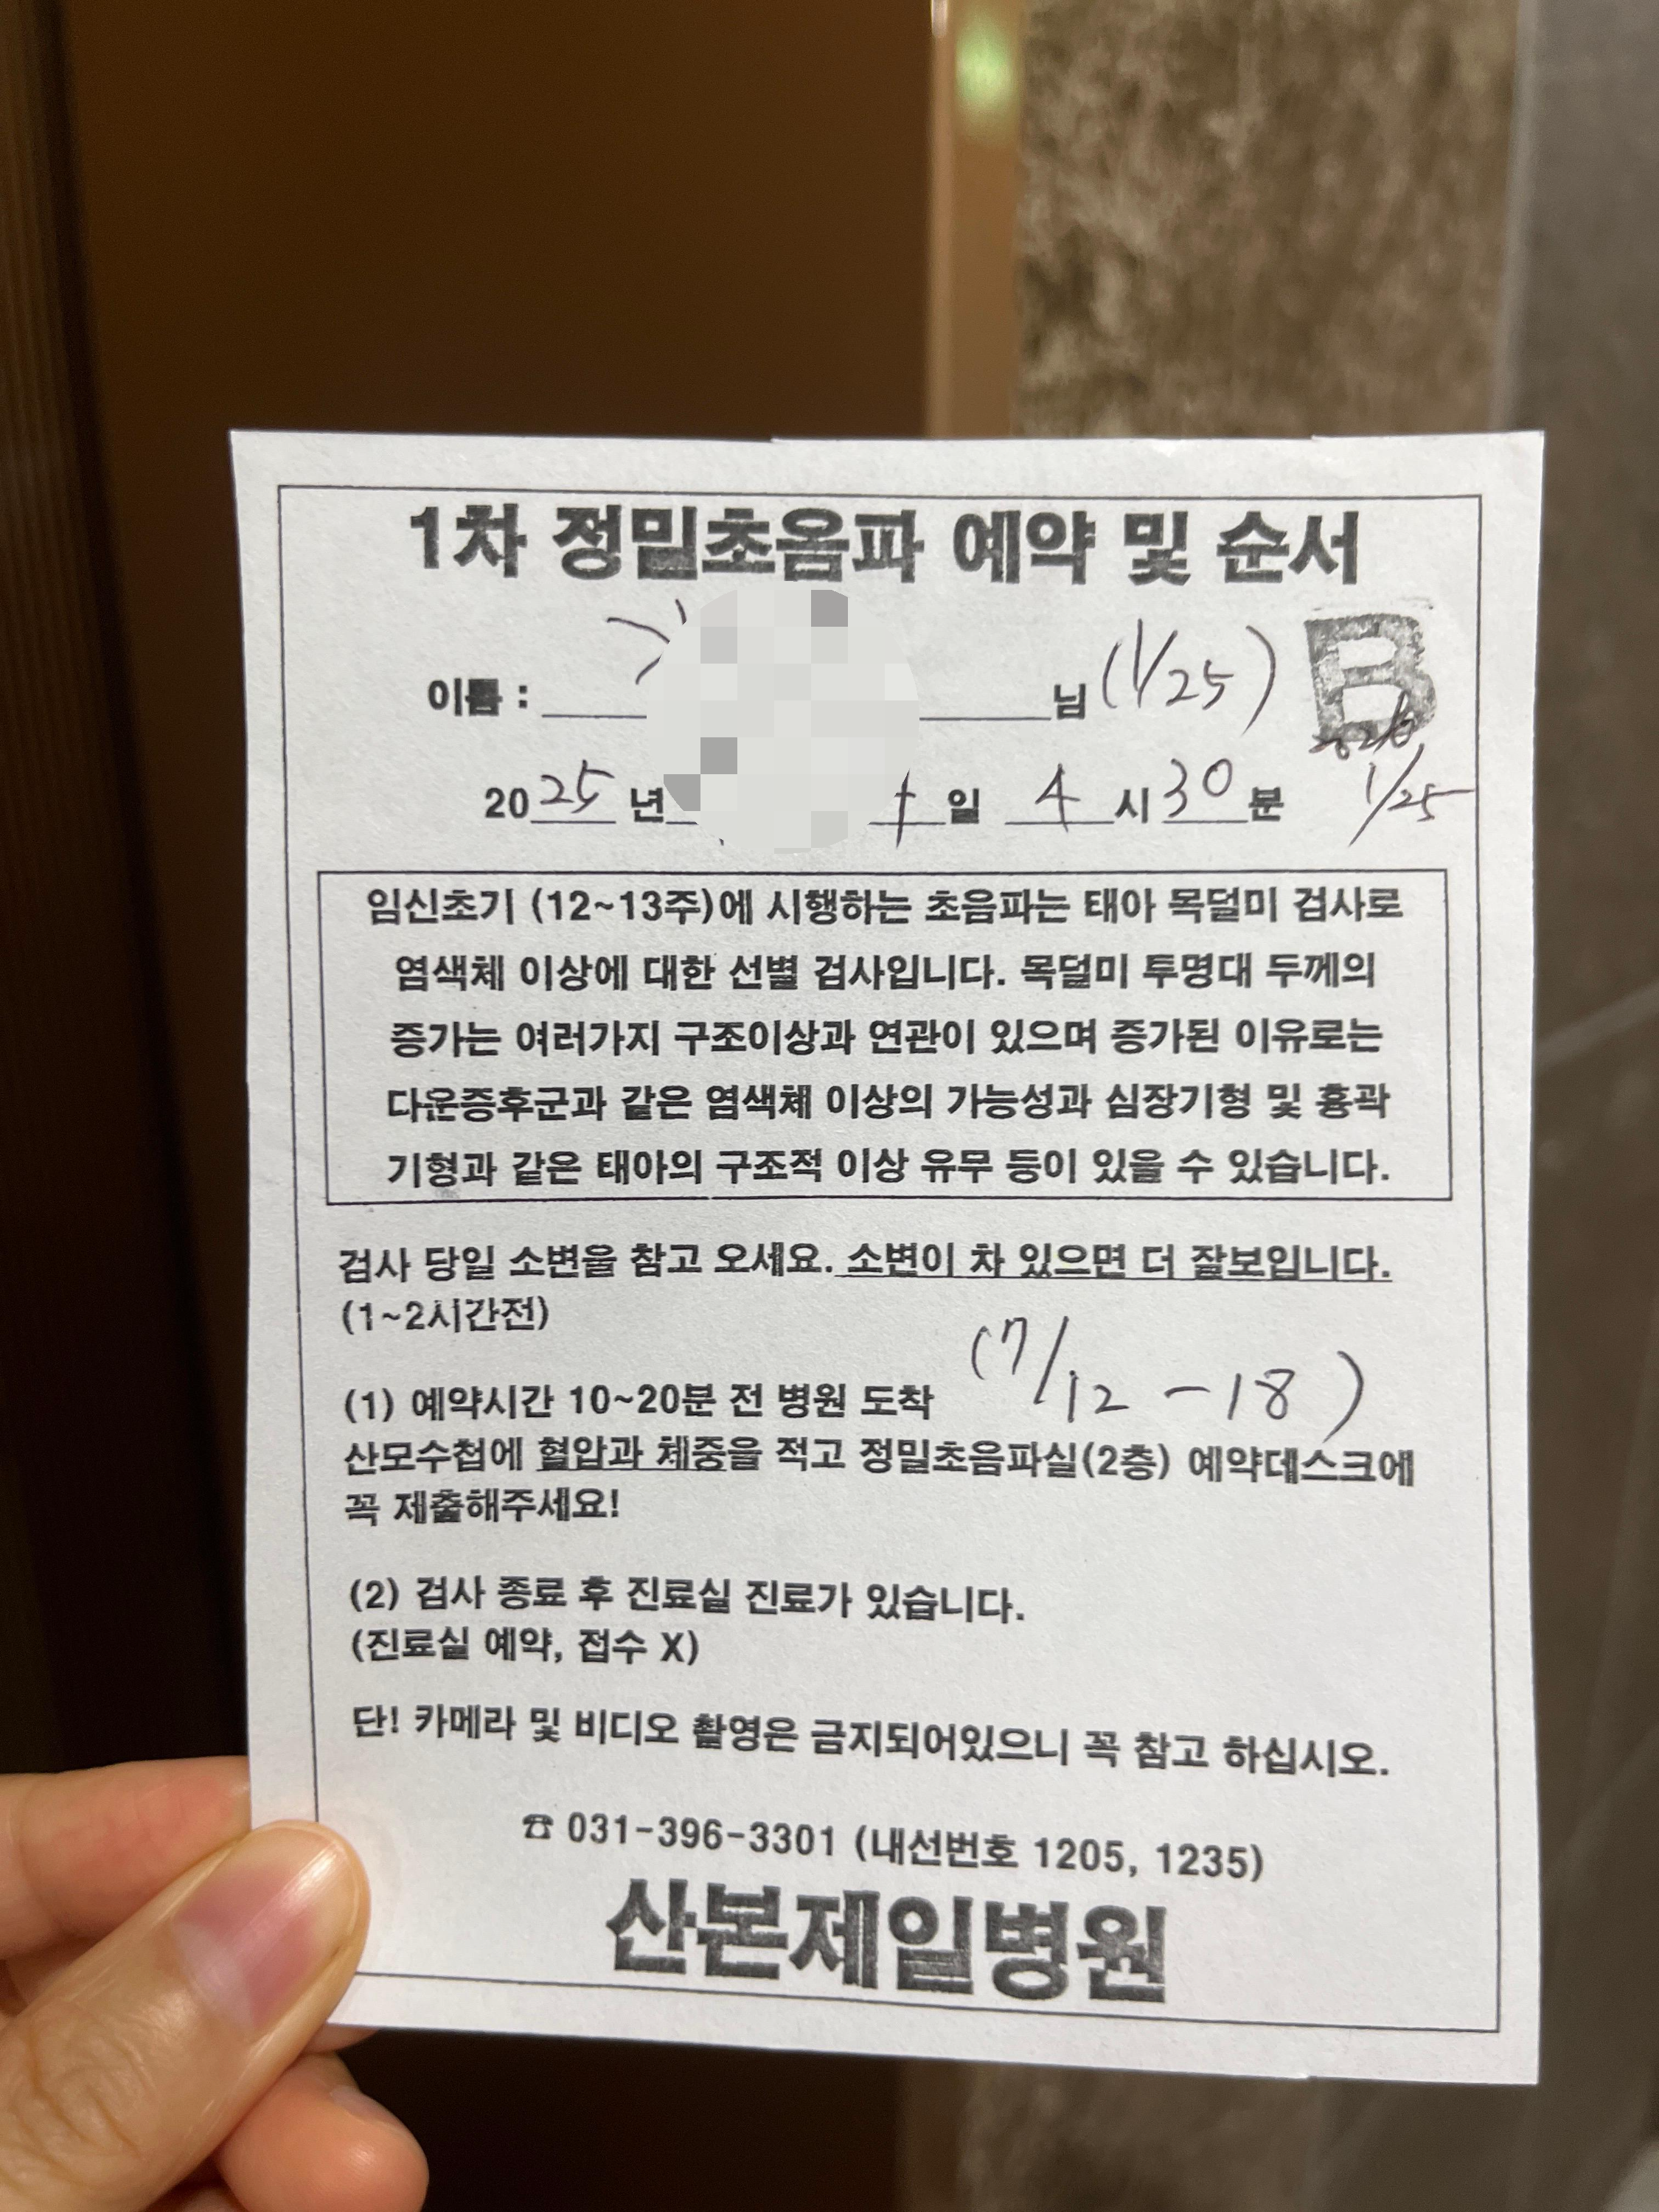 1차 정밀초음파 예약 및 순서
이름 : 님 (1/25) B
2025년 일 4시 30분 1/25
임신초기 (12~13주)에 시행하는 초음파는 태아 목덜미 검사로
염색체 이상에 대한 선별 검사입니다. 목덜미 투명대 두께의
증가는 여러가지 구조이상과 연관이 있으며 증가된 이유로는
다운증후군과 같은 염색체 이상의 가능성과 심장기형 및 흉곽
기형과 같은 태아의 구조적 이상 유무 등이 있을 수 있습니다.
검사 당일 소변을 참고 오세요. 소변이 차 있으면 더 잘보입니다.
(1~2시간전)
(7/12 - 18)
(1) 예약시간 10~20분 전 병원 도착
산모수첩에 혈압과 체중을 적고 정밀초음파실(2층) 예약데스크에
꼭 제출해주세요!
(2) 검사 종료 후 진료실 진료가 있습니다.
(진료실 예약, 접수 X)
단! 카메라 및 비디오 촬영은 금지되어있으니 꼭 참고 하십시오.
☎ 031-396-3301 (내선번호 1205, 1235)
산본제일병원